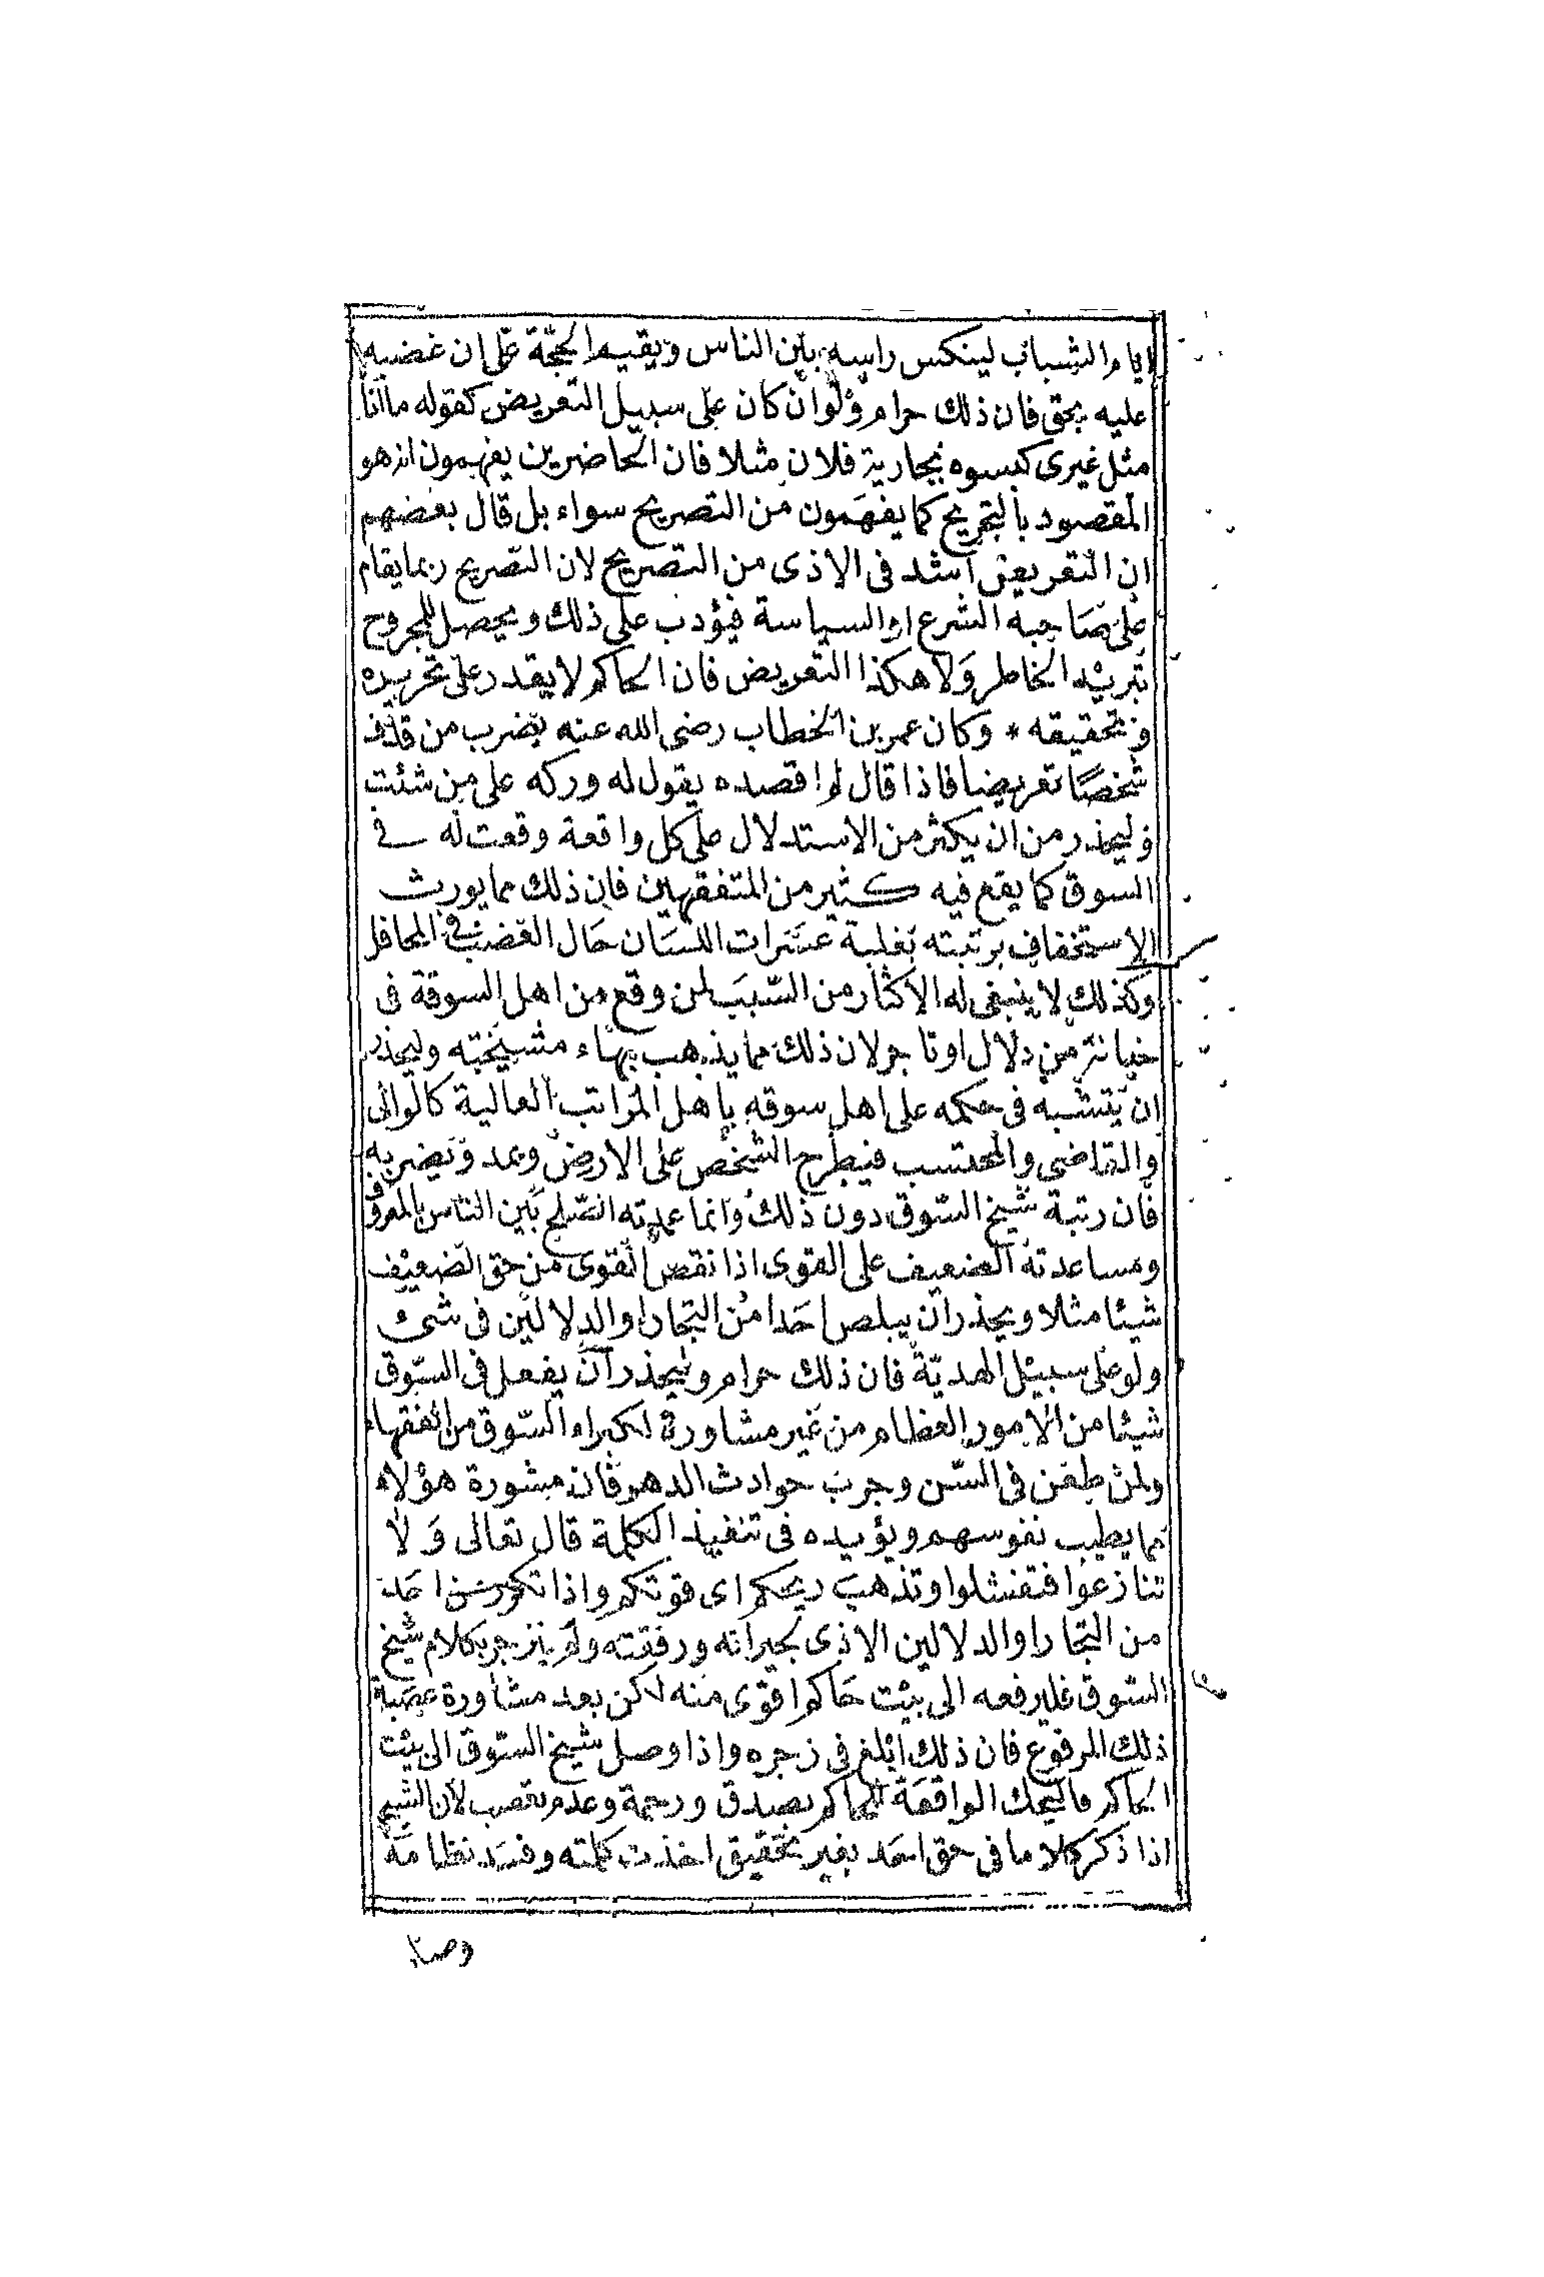 ايام الشباب لينكس راسه بين الناس ويقيم الحجة على ان غضبه
عليه بحق فان ذلك حرام ولو ان كان على سبيل التعريض كقوله ما انا
مثل غيرى كبسوه بجارية فلان مثلا فان الحاضرين يفهمون انه هو
المقصود بالتجريح كما يفهمون من التصريح سواء بل قال بعضهم
ان التعريض اشد فى الاذى من التصريح لان التصريح ربما يقام
على صاحبه الشرع او السياسة فيؤدب على ذلك ويحصل للمجروح
تبريد الخاطر ولا هكذا التعريض فان الحاكم لا يقدر على تحريره
وتحقيقه * وكان عمر بن الخطاب رضى الله عنه يضرب من قذف
شخصا تعريضا فاذا قال لم اقصده يقول له وركه على من شئت
وليحذر من ان يكثر من الاستدلال على كل واقعة وقعت له فى
السوق كما يقع فيه كثير من المتفقهين فان ذلك مما يورث
الاستخفاف برتبته بغلبة عثرات اللسان حال الغضب فى المحافل
وكذلك لا ينبغى له الاكثار من السبب لمن وقع من اهل السوقة فى
خيانة من دلال او تاجر لان ذلك مما يذهب بهاء مشيخته وليحذر
ان يتشبه فى حكمه على اهل سوقه باهل المراتب العالية كالوالى
والقاضى والمحتسب فيطرح الشخص على الارض ويمد ويضربه
فان رتبة شيخ السوق دون ذلك وانما عمدته الصلح بين الناس بالمعروف
ومساعدته الضعيف على القوى اذا نقص القوى من حق الضعيف
شيئا مثلا ويحذر ان يبلص احدا من التجار او الدلالين فى شئ
ولو على سبيل الهدية فان ذلك حرام وليحذر ان يفعل فى السوق
شيئا من الامور العظام من غير مشاورة لكبراء السوق من الفقهاء
ولمن طعن فى السن وجرب حوادث الدهر فان مشورة هؤلاء
مما يطيب نفوسهم ويؤيده فى تنفيذ الكلمة قال تعالى ولا
تنازعوا فتفشلوا وتذهب ريحكم اى قوتكم واذا تكرر من احد
من التجار او الدلالين الاذى لجيرانه ورفقته ولم ينزجر بكلام شيخ
السوق فليرفعه الى بيت حاكم اقوى منه لكن بعد مشاورة عصبة
ذلك المرفوع فان ذلك ابلغ فى زجره واذا وصل شيخ السوق الى بيت
الحاكم فاليحك الواقعة للحاكم بصدق ورحمة وعدم تعصب لان الشيخ
اذا ذكر كلاما فى حق احد بغير تحقيق اخذت كلمته وفسد نظامه
وصار